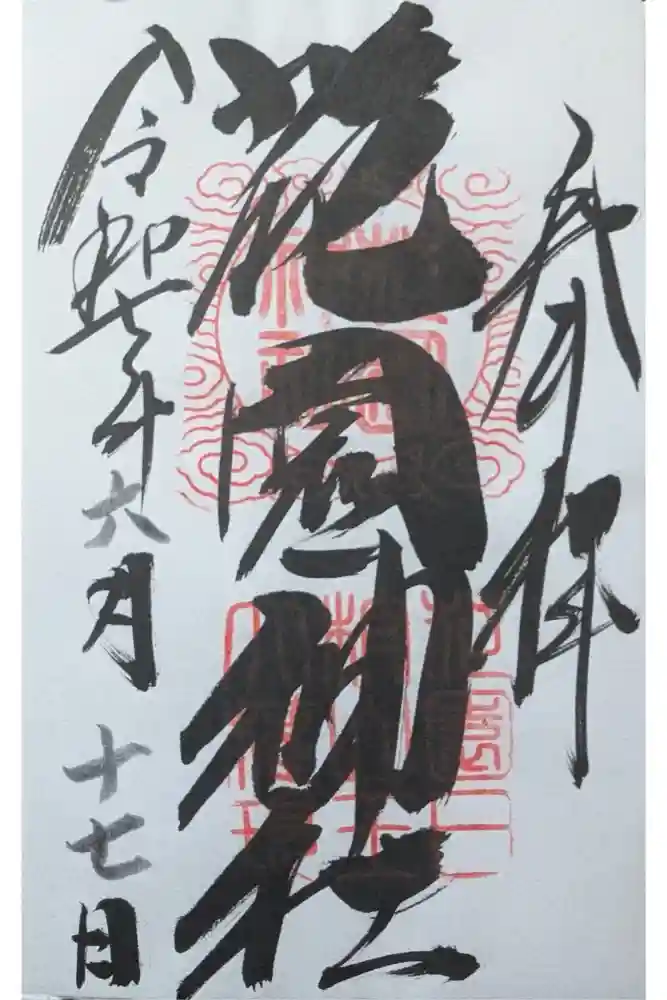 奉拝
花園神社
令和七年六月十七日